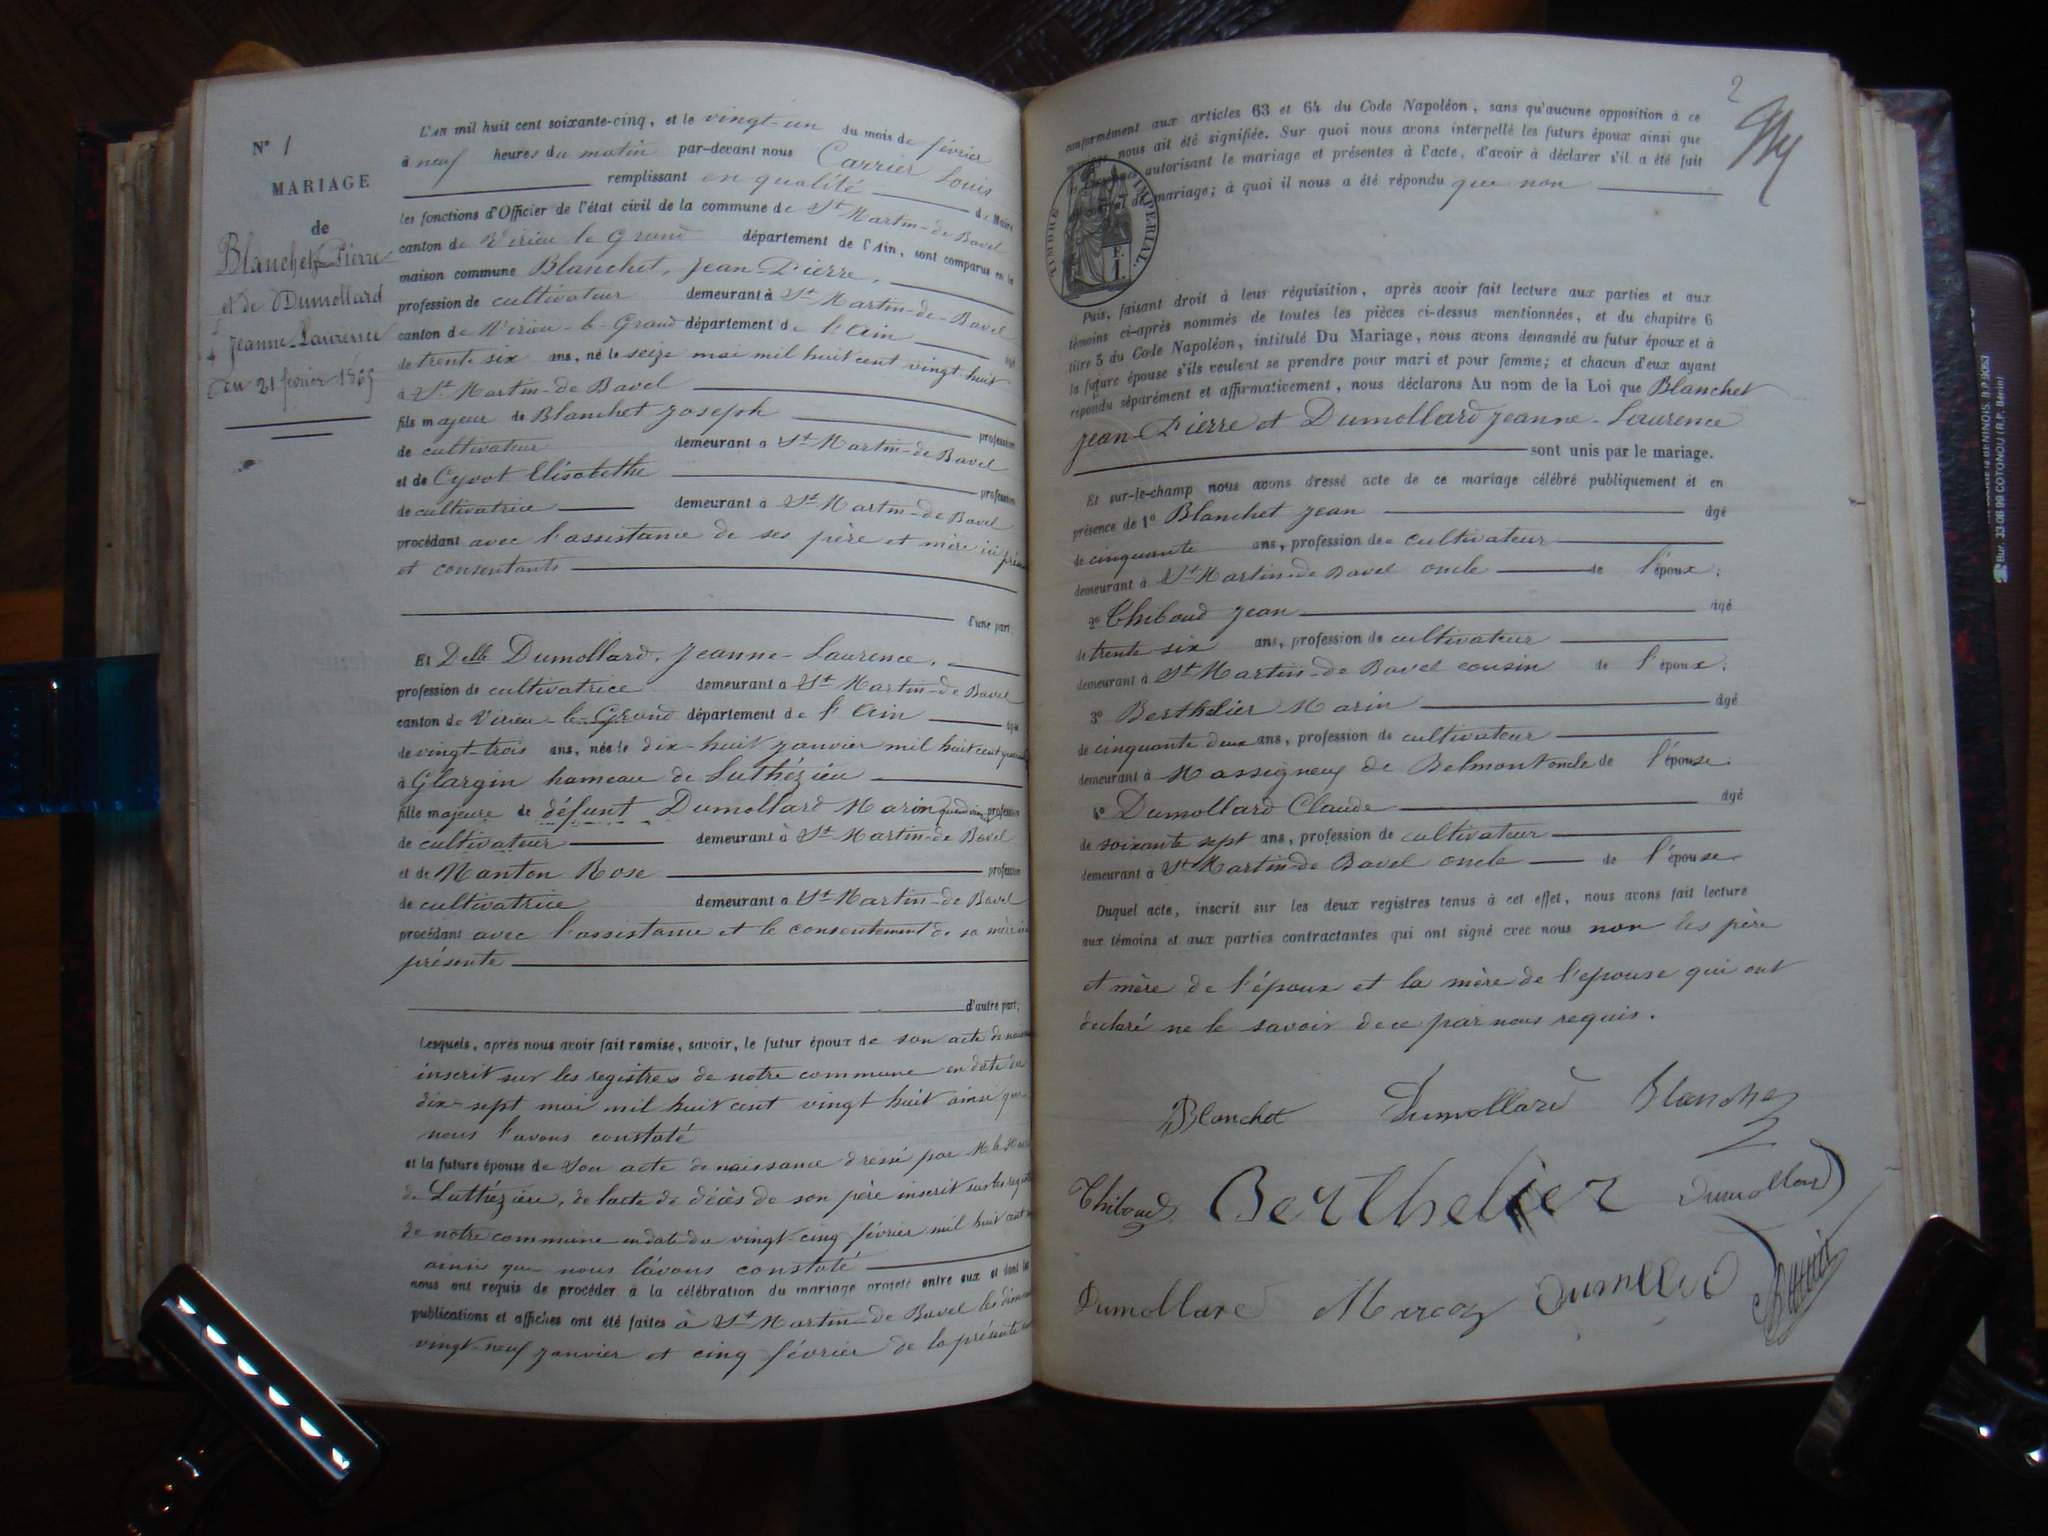 N° 1
MARIAGE
de
Blanchet Pierre
et de Dumollard
Jeanne-Laurence
du 21 février 1865
L'AN mil huit cent soixante-cinq, et le vingt-un du mois de février
à neuf heures du matin par-devant nous Carrier Louis
remplissant en qualité de Maire
les fonctions d'Officier de l'état civil de la commune de St Martin-de Bavel
canton de Virieu le Grand département de l'Ain, sont comparus en la
maison commune Blanchet, Jean-Pierre,
profession de cultivateur demeurant à St Martin-de-Bavel
canton de Virieu-le-Grand département de l'Ain âgé
de trente six ans, né le seize mai mil huit cent vingt huit
à St Martin-de Bavel
fils majeur de Blanchet Joseph profession
de cultivateur demeurant à St Martin-de Bavel
et de Cyvot Elisabethe profession
de cultivatrice demeurant à St Martin-de Bavel
procédant avec l'assistance de ses père et mère ici
et consentants
d'une part.
Et Delle Dumollard, Jeanne-Laurence,
profession de cultivatrice demeurant à St Martin-de Bavel
canton de Virieu-le-Grand département de l'Ain âgée
de vingt-trois ans, née le dix-huit janvier mil huit cent
à Glargin hameau de Luthézieu
fille majeure de défunt Dumollard Marin quand vivait profession
de cultivateur demeurant à St Martin-de Bavel
et de Nanton Rose profession
de cultivatrice demeurant à St Martin-de Bavel
procédant avec l'assistance et le consentement de sa mère ici
présente
d'autre part.
Lesquels, après nous avoir fait remise, savoir, le futur époux de son acte de
inscrit sur les registres de notre commune en date du
dix-sept mai mil huit cent vingt huit ainsi que
nous l'avons constaté
et la future épouse de son acte de naissance dressé par M. le
de Luthézieu, de l'acte de décès de son père inscrit sur les
de notre commune en date du vingt-cinq février mil huit cent
ainsi que nous l'avons constaté
nous ont requis de procéder à la célébration du mariage projeté entre eux et dont les
publications et affiches ont été faites à St Martin-de Bavel les
vingt-neuf janvier et cinq février de la présente
2
conformément aux articles 63 et 64 du Code Napoléon, sans qu'aucune opposition à ce
mariage nous ait été signifiée. Sur quoi nous avons interpellé les futurs époux ainsi que
autorisant le mariage et présentes à l'acte, d'avoir à déclarer s'il a été fait
mariage; à quoi il nous a été répondu que non
TIMBRE IMPÉRIAL
Puis, faisant droit à leur réquisition, après avoir fait lecture aux parties et aux
témoins ci-après nommés de toutes les pièces ci-dessus mentionnées, et du chapitre 6
titre 5 du Code Napoléon, intitulé Du Mariage, nous avons demandé au futur époux et à
la future épouse s'ils veulent se prendre pour mari et pour femme; et chacun d'eux ayant
répondu séparément et affirmativement, nous déclarons Au nom de la Loi que Blanchet
Jean-Pierre et Dumollard Jeanne-Laurence
sont unis par le mariage.
Et sur-le-champ nous avons dressé acte de ce mariage célébré publiquement et en
présence de 1° Blanchet Jean âgé
de cinquante ans, profession de cultivateur
demeurant à St Martin-de Bavel oncle de l'époux;
2° Thiboud Jean âgé
de trente six ans, profession de cultivateur
demeurant à St Martin-de Bavel cousin de l'époux;
3° Berthelier Marin âgé
de cinquante deux ans, profession de cultivateur
demeurant à Massigneux de Belmont oncle de l'épouse;
4° Dumollard Claude âgé
de soixante sept ans, profession de cultivateur
demeurant à St Martin-de Bavel oncle de l'épouse
Duquel acte, inscrit sur les deux registres tenus à cet effet, nous avons fait lecture
aux témoins et aux parties contractantes qui ont signé avec nous non les père
et mère de l'époux et la mère de l'épouse qui ont
declaré ne le savoir de ce par nous requis.
Blanchet Dumollard Blanchet
Thiboud Berthelier Dumollard
Dumollard Dumollard